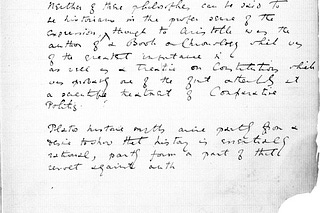 Neither of these philosophers can be said to
be historians in the proper sense of the
expression, though to Aristotle was the
author of a Book on Chronology which was
of the greatest importance
as well as a Treatise on Constitutions which
was probably one of the first attempts at
a scientific treatment of Comparative
Politics.
Plato's historic myths arise partly from a
desire to show that history is essentially
rational, partly form a part of their
revolt against